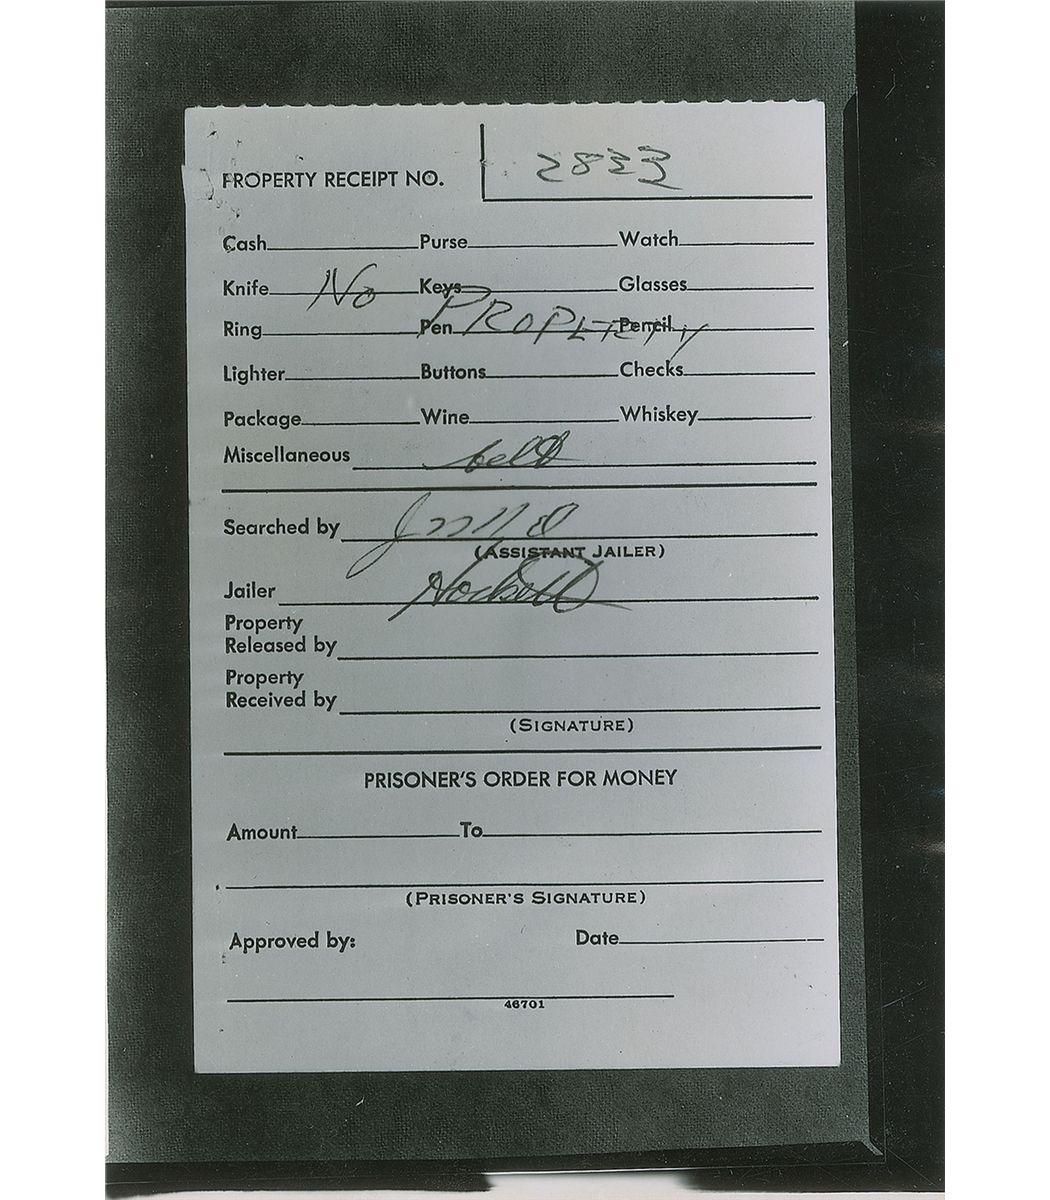 PROPERTY RECEIPT NO. 2833
Cash Purse Watch
Knife No Keys Glasses
Ring Pen PROPERTY Pencil
Lighter Buttons Checks
Package Wine Whiskey
Miscellaneous belt
Searched by
(ASSISTANT JAILER)
Jailer
Property
Released by
Property
Received by
(SIGNATURE)
PRISONER'S ORDER FOR MONEY
Amount To
(PRISONER'S SIGNATURE)
Approved by: Date
46701